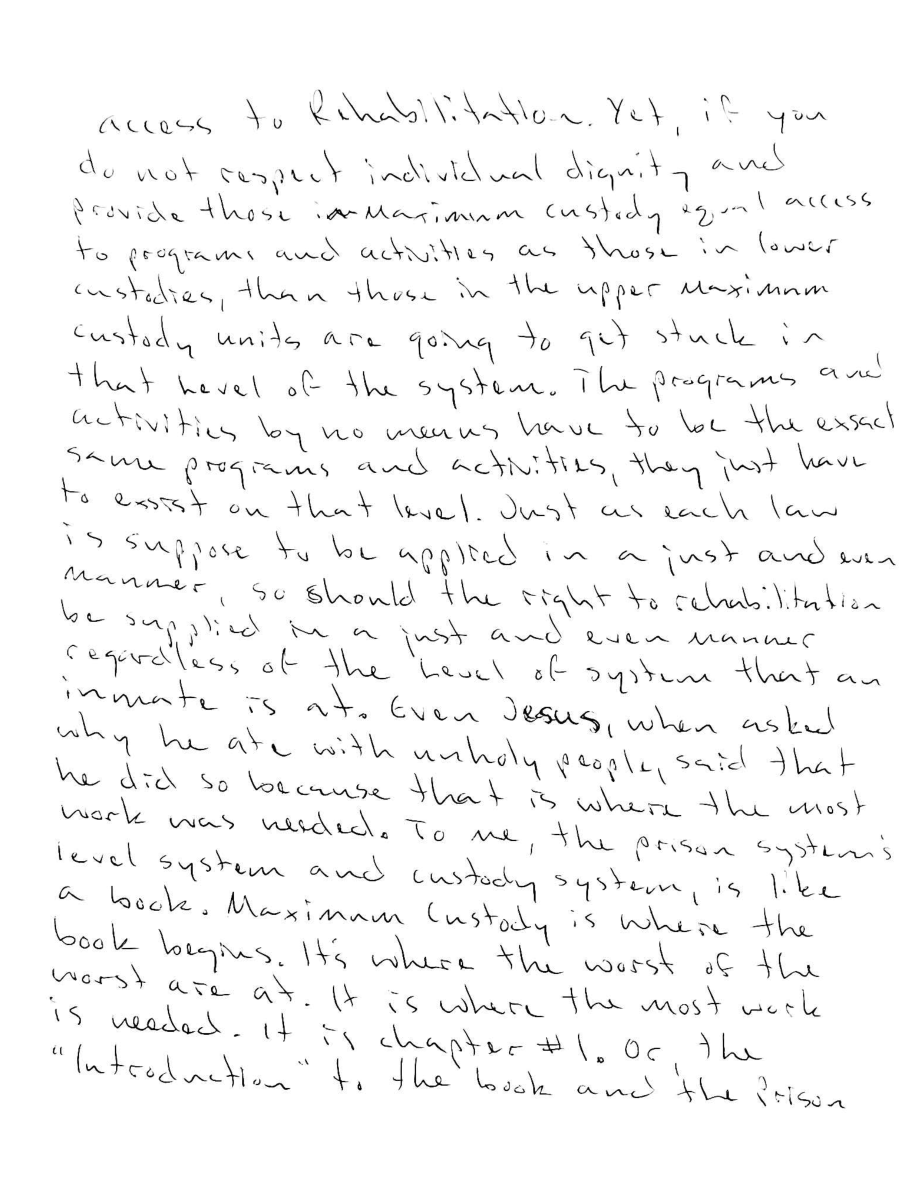 access to Rehabilitation. Yet, if you
do not respect individual dignity and
provide those in Maximum custody equal access
to programs and activities as those in lower
custodies, than those in the upper Maximum
custody units are going to get stuck in
that Level of the system. The programs and
activities by no means have to be the exsact
same programs and activities, they just have
to exsist on that level. Just as each law
is suppose to be applied in a just and even
manner, so should the right to rehabilitation
be supplied in a just and even manner
regardless of the Level of system that an
inmate is at. Even Jesus, when asked
why he ate with unholy people, said that
he did so because that is where the most
work was needed. To me, the prison system's
level system and custody system, is like
a book. Maximum Custody is where the
book begins. It's where the worst of the
worst are at. It is where the most work
is needed. It is chapter #1. Or, the
"Introduction" to the book and the Prison